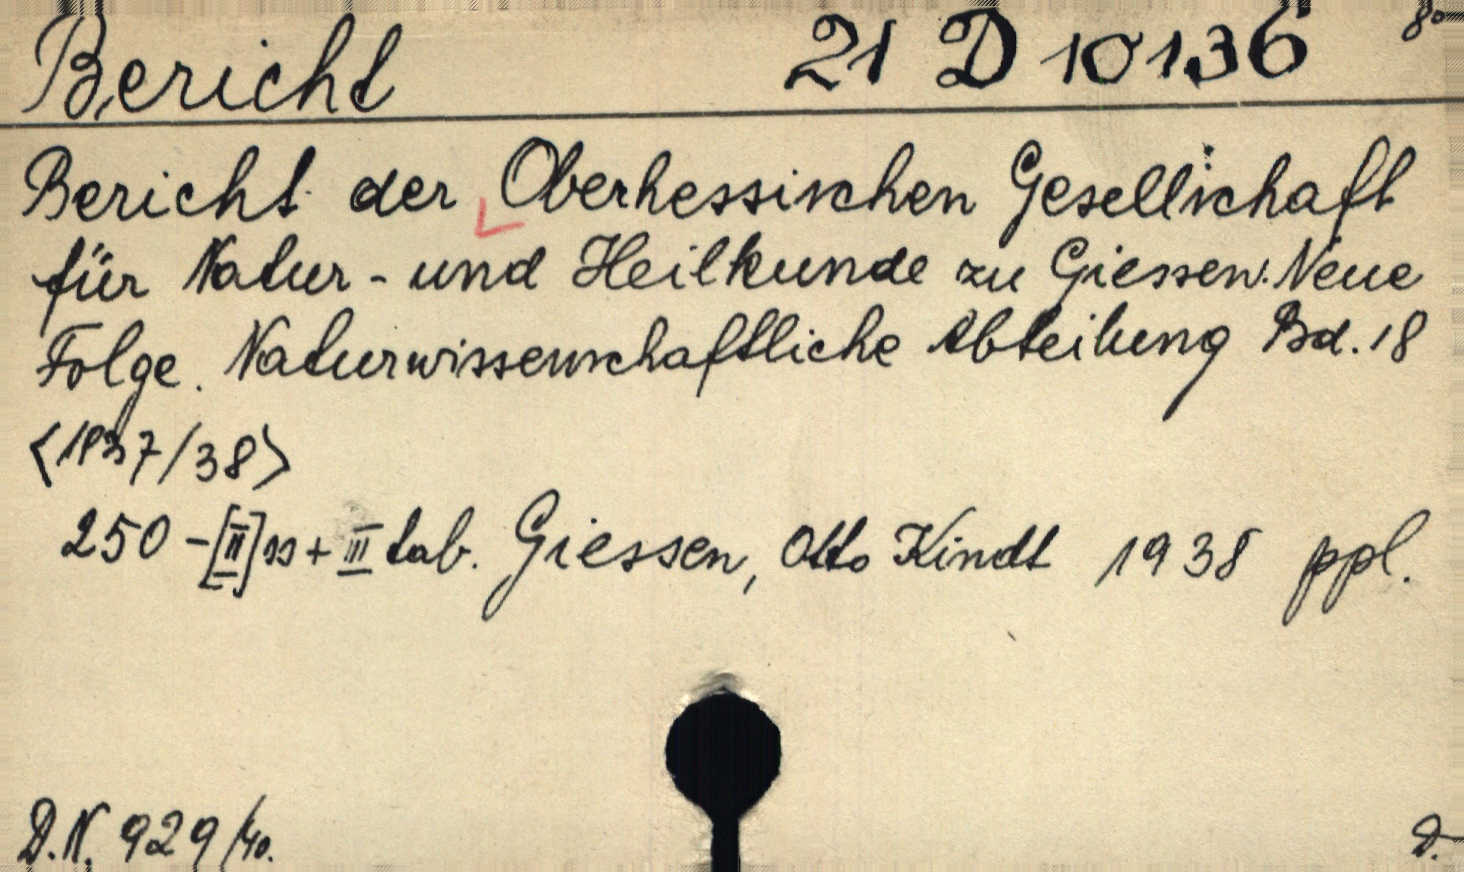 Bericht 21 D 10136 8°
Bericht der Oberhessischen Gesellschaft
für Natur- und Heilkunde zu Giessen. Neue
Folge. Naturwissenschaftliche Abteilung Bd. 18
<1937/38>
250 - [II] ss + III tab. Giessen, Otto Kindt 1938 ppl.
D.N. 929/40. D.